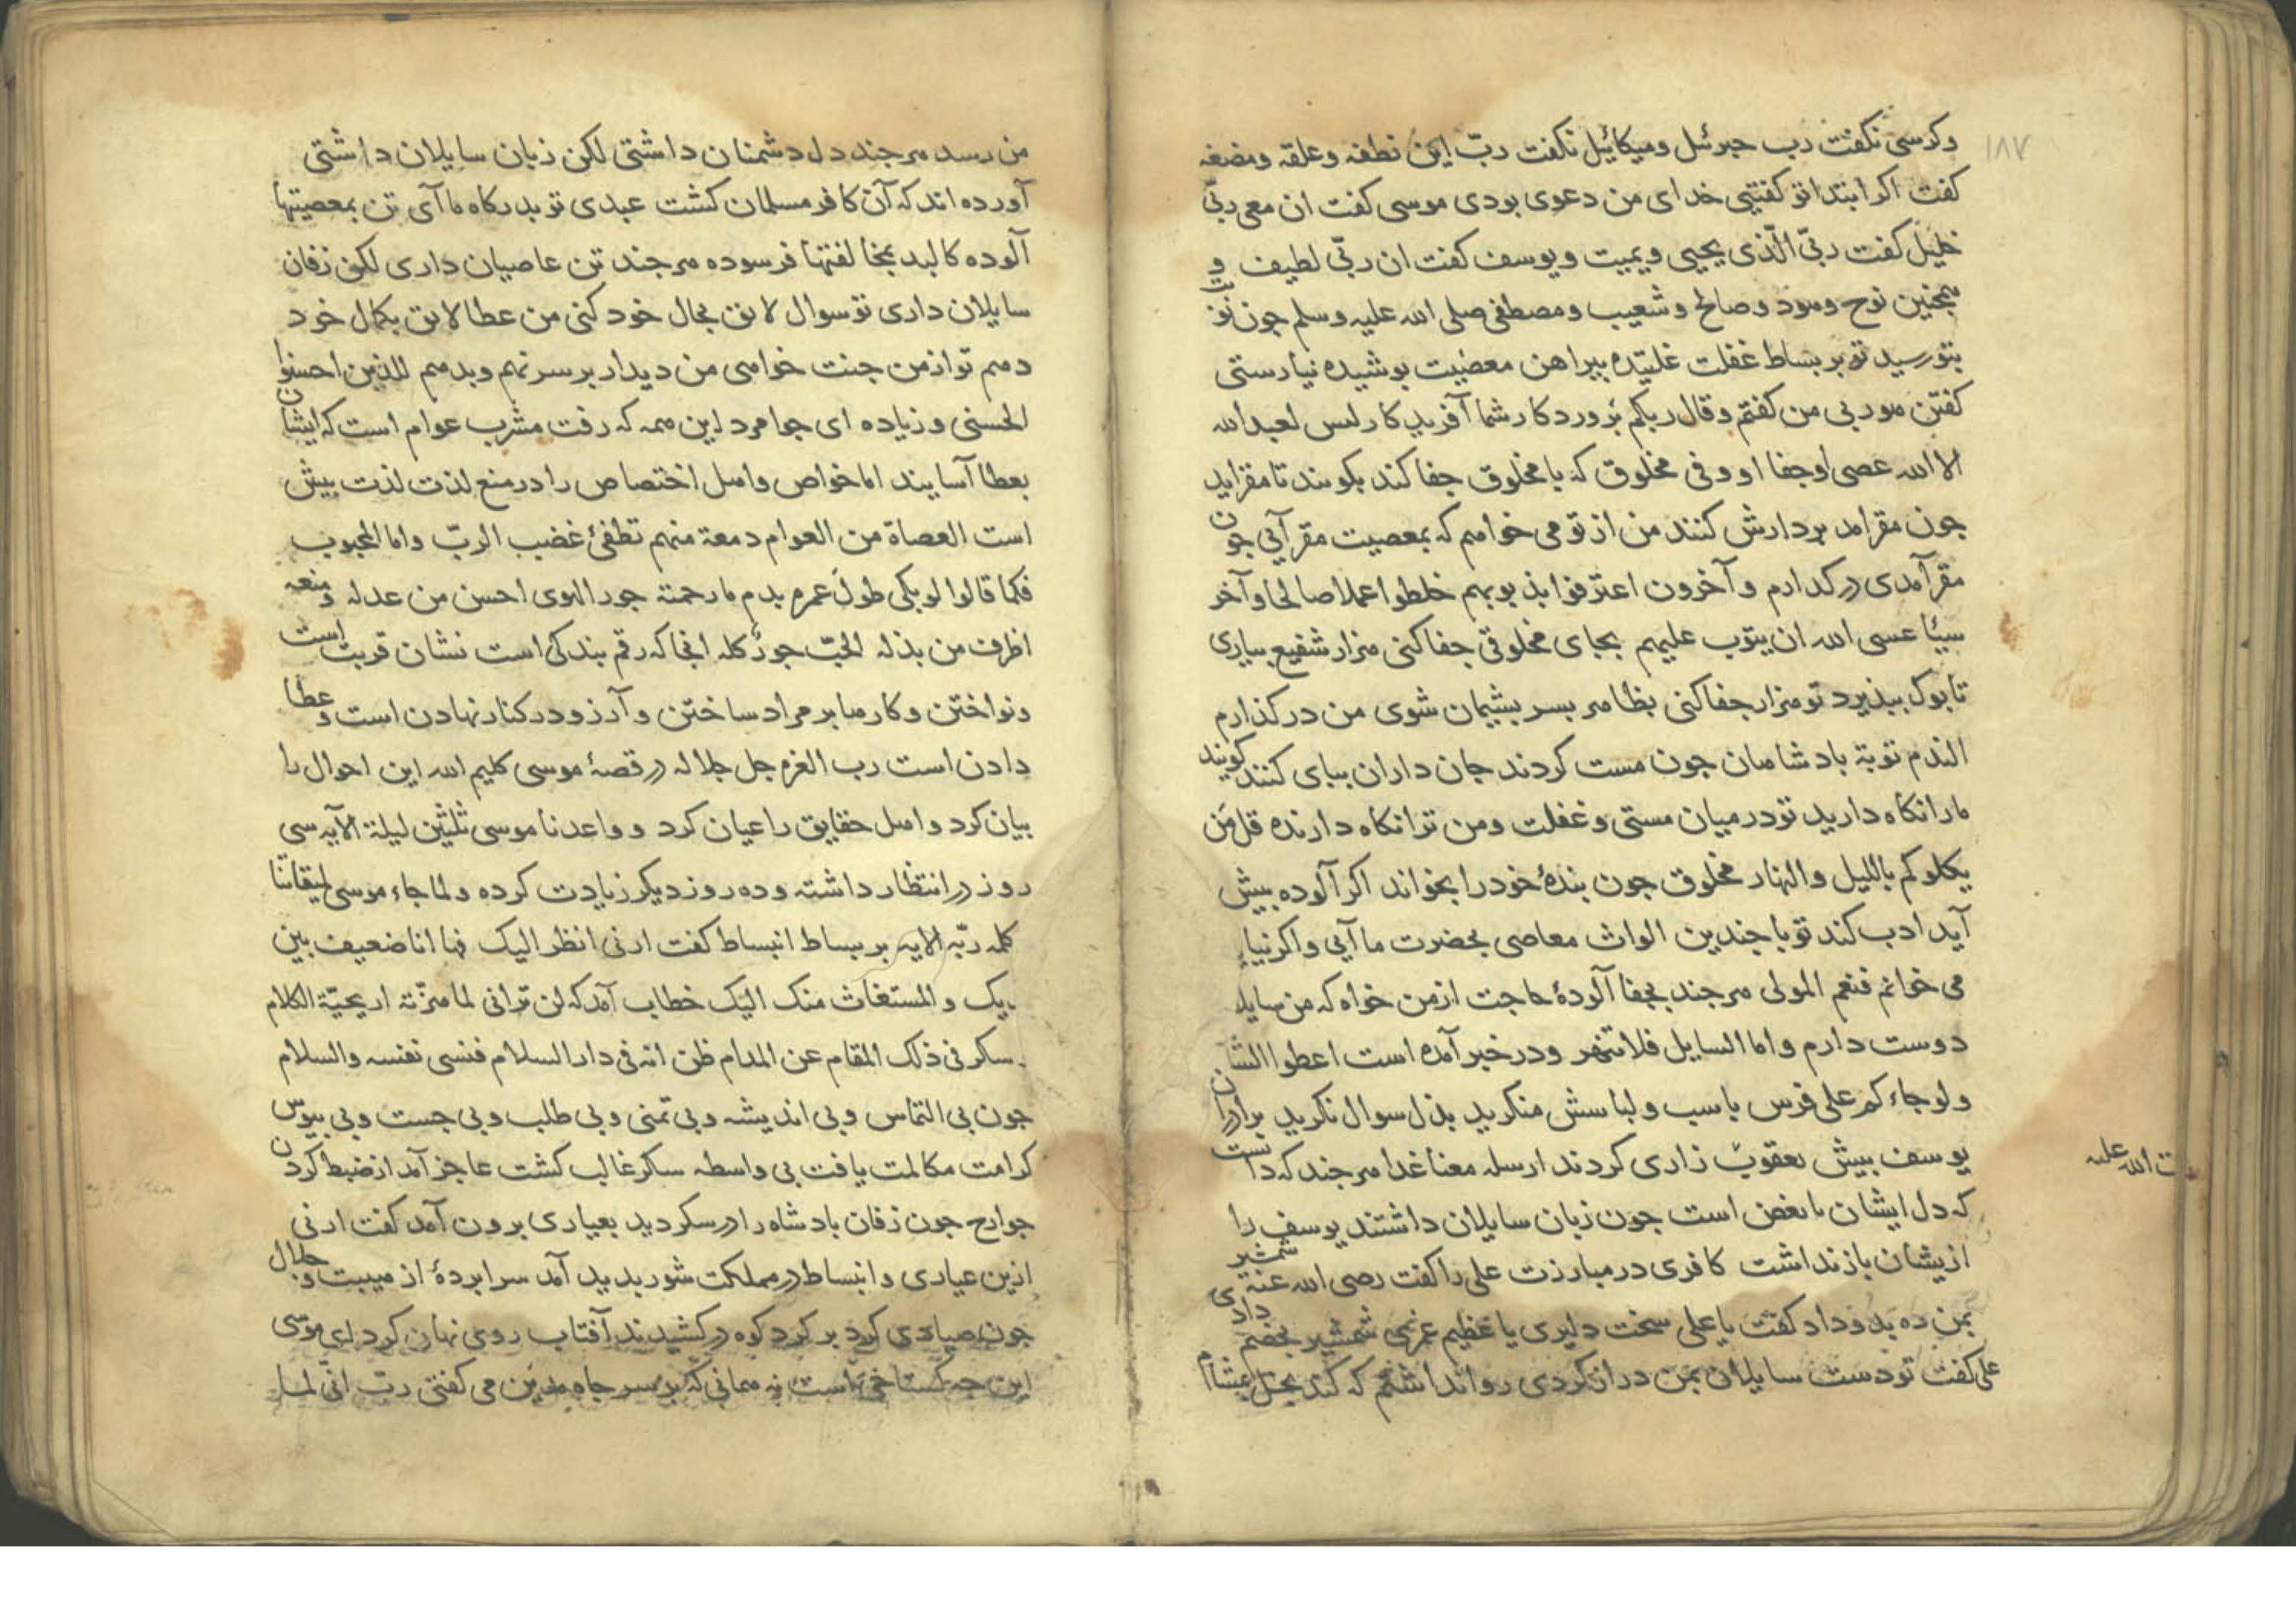 ۱۸۷
وکرسی نکفت رب جبرئیل ومیکائیل نکفت ربّ این نطفه وعلقه ومضغه
کفت اکر ابتدا تو کفتیی خدای من دعوی بودی موسی کفت ان معی ربّی
خلیل کفت ربّی الّذی یحیی ویمیت ویوسف کفت ان ربّی لطیف و
همجنین نوح وهود وصالح وشعیب ومصطفی صلی الله علیه وسلم جون نوبت
بتو رسید تو بر بساط غفلت غلتیده پیراهن معصیت پوشیده نیارستی
کفتن هو ربی من کفتم وقال ربکم پرورد کار شما آفرید کار لیس لعبد الله
الا الله عصی او جفا او وفی مخلوق که با مخلوق جفا کند بکویند تا مقر اید
جون مقر امد بر دارش کنند من از تو می خواهم که بمعصیت مقر آیی جون
مقر آمدی در کدارم وآخرون اعترفوا بذنوبهم خلطوا عملا صالحا وآخر
سیئا عسی الله ان یتوب علیهم بجای مخلوقی جفا کنی هزار شفیع بیاری
تا بوک ببذیرد تو هزار جفا کنی بظاهر بسر بشیمان شوی من در کذارم
الندم توبة بادشاهان جون مست کردند جان داران ببای کنند کویند
ما را نکاه دارید تو در میان مستی وغفلت ومن ترا نکاه دارنده قل من
یکلوکم باللیل والنهار مخلوق جون بندهٔ خود را بخواند اکر آلوده بیش
آید ادب کند تو با جندین الواث معاصی بحضرت ما آیی واکر نیایی
می خوانم فنعم المولی هر جند بجفا آلودهٔ حاجت از من خواه که من سایل
دوست دارم واما السایل فلا تنهر ودر خبر آمده است اعطوا السائل
ولو جاءکم علی فرس باسب ولباسش منکرید بذل سوال نکرید برادران
یوسف بیش یعقوب زاری کردند ارسله معنا غدا هر جند که دانست
که دل ایشان با بغض است جون زبان سایلان داشتند یوسف را
ازیشان باز نداشت کافری در مبارزت علی را کفت رضی الله عنه شمشیر
بمن ده بدو داد کفت یا علی سخت دلیری یا عظیم غری شمشیر بخصم دادی
علی کفت تو دست سایلان بمن دراز کردی روا نداشتم که کند بخل
ت الله علیه
من رسد هر جند دل دشمنان داشتی لکن زبان سایلان داشتی
آورده اند که آن کافر مسلمان کشت عبدی تو بدرکاه ما آی تن بمعصیتها
آلوده کالبد بمخالفتها فرسوده هر جند تن عاصیان داری لکن زفان
سایلان داری تو سوال لایق بحال خود کنی من عطا لایق بکمال خود
دهم تو از من جنت خواهی من دیدار بر سر نهم وبدهم للذین احسنوا
الحسنی وزیاده ای جوامرد این همه که رفت مشرب عوام است که ایشان
بعطا آسایند اما خواص واهل اختصاص را در منع لذت لذت بیش
است العصاة من العوام دمعة منهم تطفئ غضب الربّ واما المحبوب
فکما قالوا لو بکی طول عمره بدم ما رحمته جور الهوی احسن من عدله ومنعه
اظرف من بذله الحبّ جور کله انجا که رقم بندکی است نشان قربت است
ونواختن وکارها بر مراد ساختن وآرزو در کنار نهادن است وعطا
دادن است رب العزه جل جلاله در قصهٔ موسی کلیم الله این احوال را
بیان کرد واهل حقایق را عیان کرد وواعدنا موسی ثلثین لیلة الآیه سی
روز در انتظار داشته وده روز دیکر زیادت کرده ولما جاء موسی لمیقاتنا
کلمه ربّه الایه بر بساط انبساط کفت ارنی انظر الیک فها انا ضعیف بین
یدیک والمستغاث منک الیک خطاب آمد که لن ترانی لما هزّته اریحیّة الکلام
وسکر فی ذلک المقام عن المدام ظن انه فی دار السلام فنسی نفسه والسلام
جون بی التماس وبی اندیشه وبی تمنی وبی طلب وبی جست وبی بیوس
کرامت مکالمت یافت بی واسطه سکر غالب کشت عاجز آمد از ضبط کردن
جوارح جون زفان بادشاه را در سکر دید بعیاری برون آمد کفت ارنی
ازین عیاری وانبساط در مملکت شور بدید آمد سرابردهٔ از هیبت وجلال
جون صیادی کرد بر کرد کوه در کشیدند آفتاب روی نهان کرد ای موسی
این جه کستاخی است نه همانی که بر سر جاه مدین می کفتی ربّ انّی لما